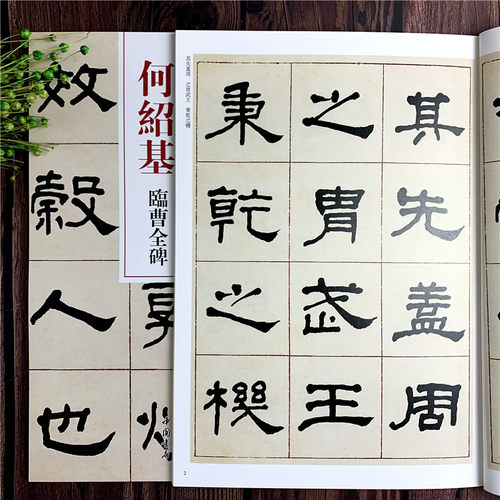 何紹基
臨曹全碑
效穀人也
其先蓋周 之胄武王 秉乾之機
其先蓋周
之胄武王
秉乾之機
2